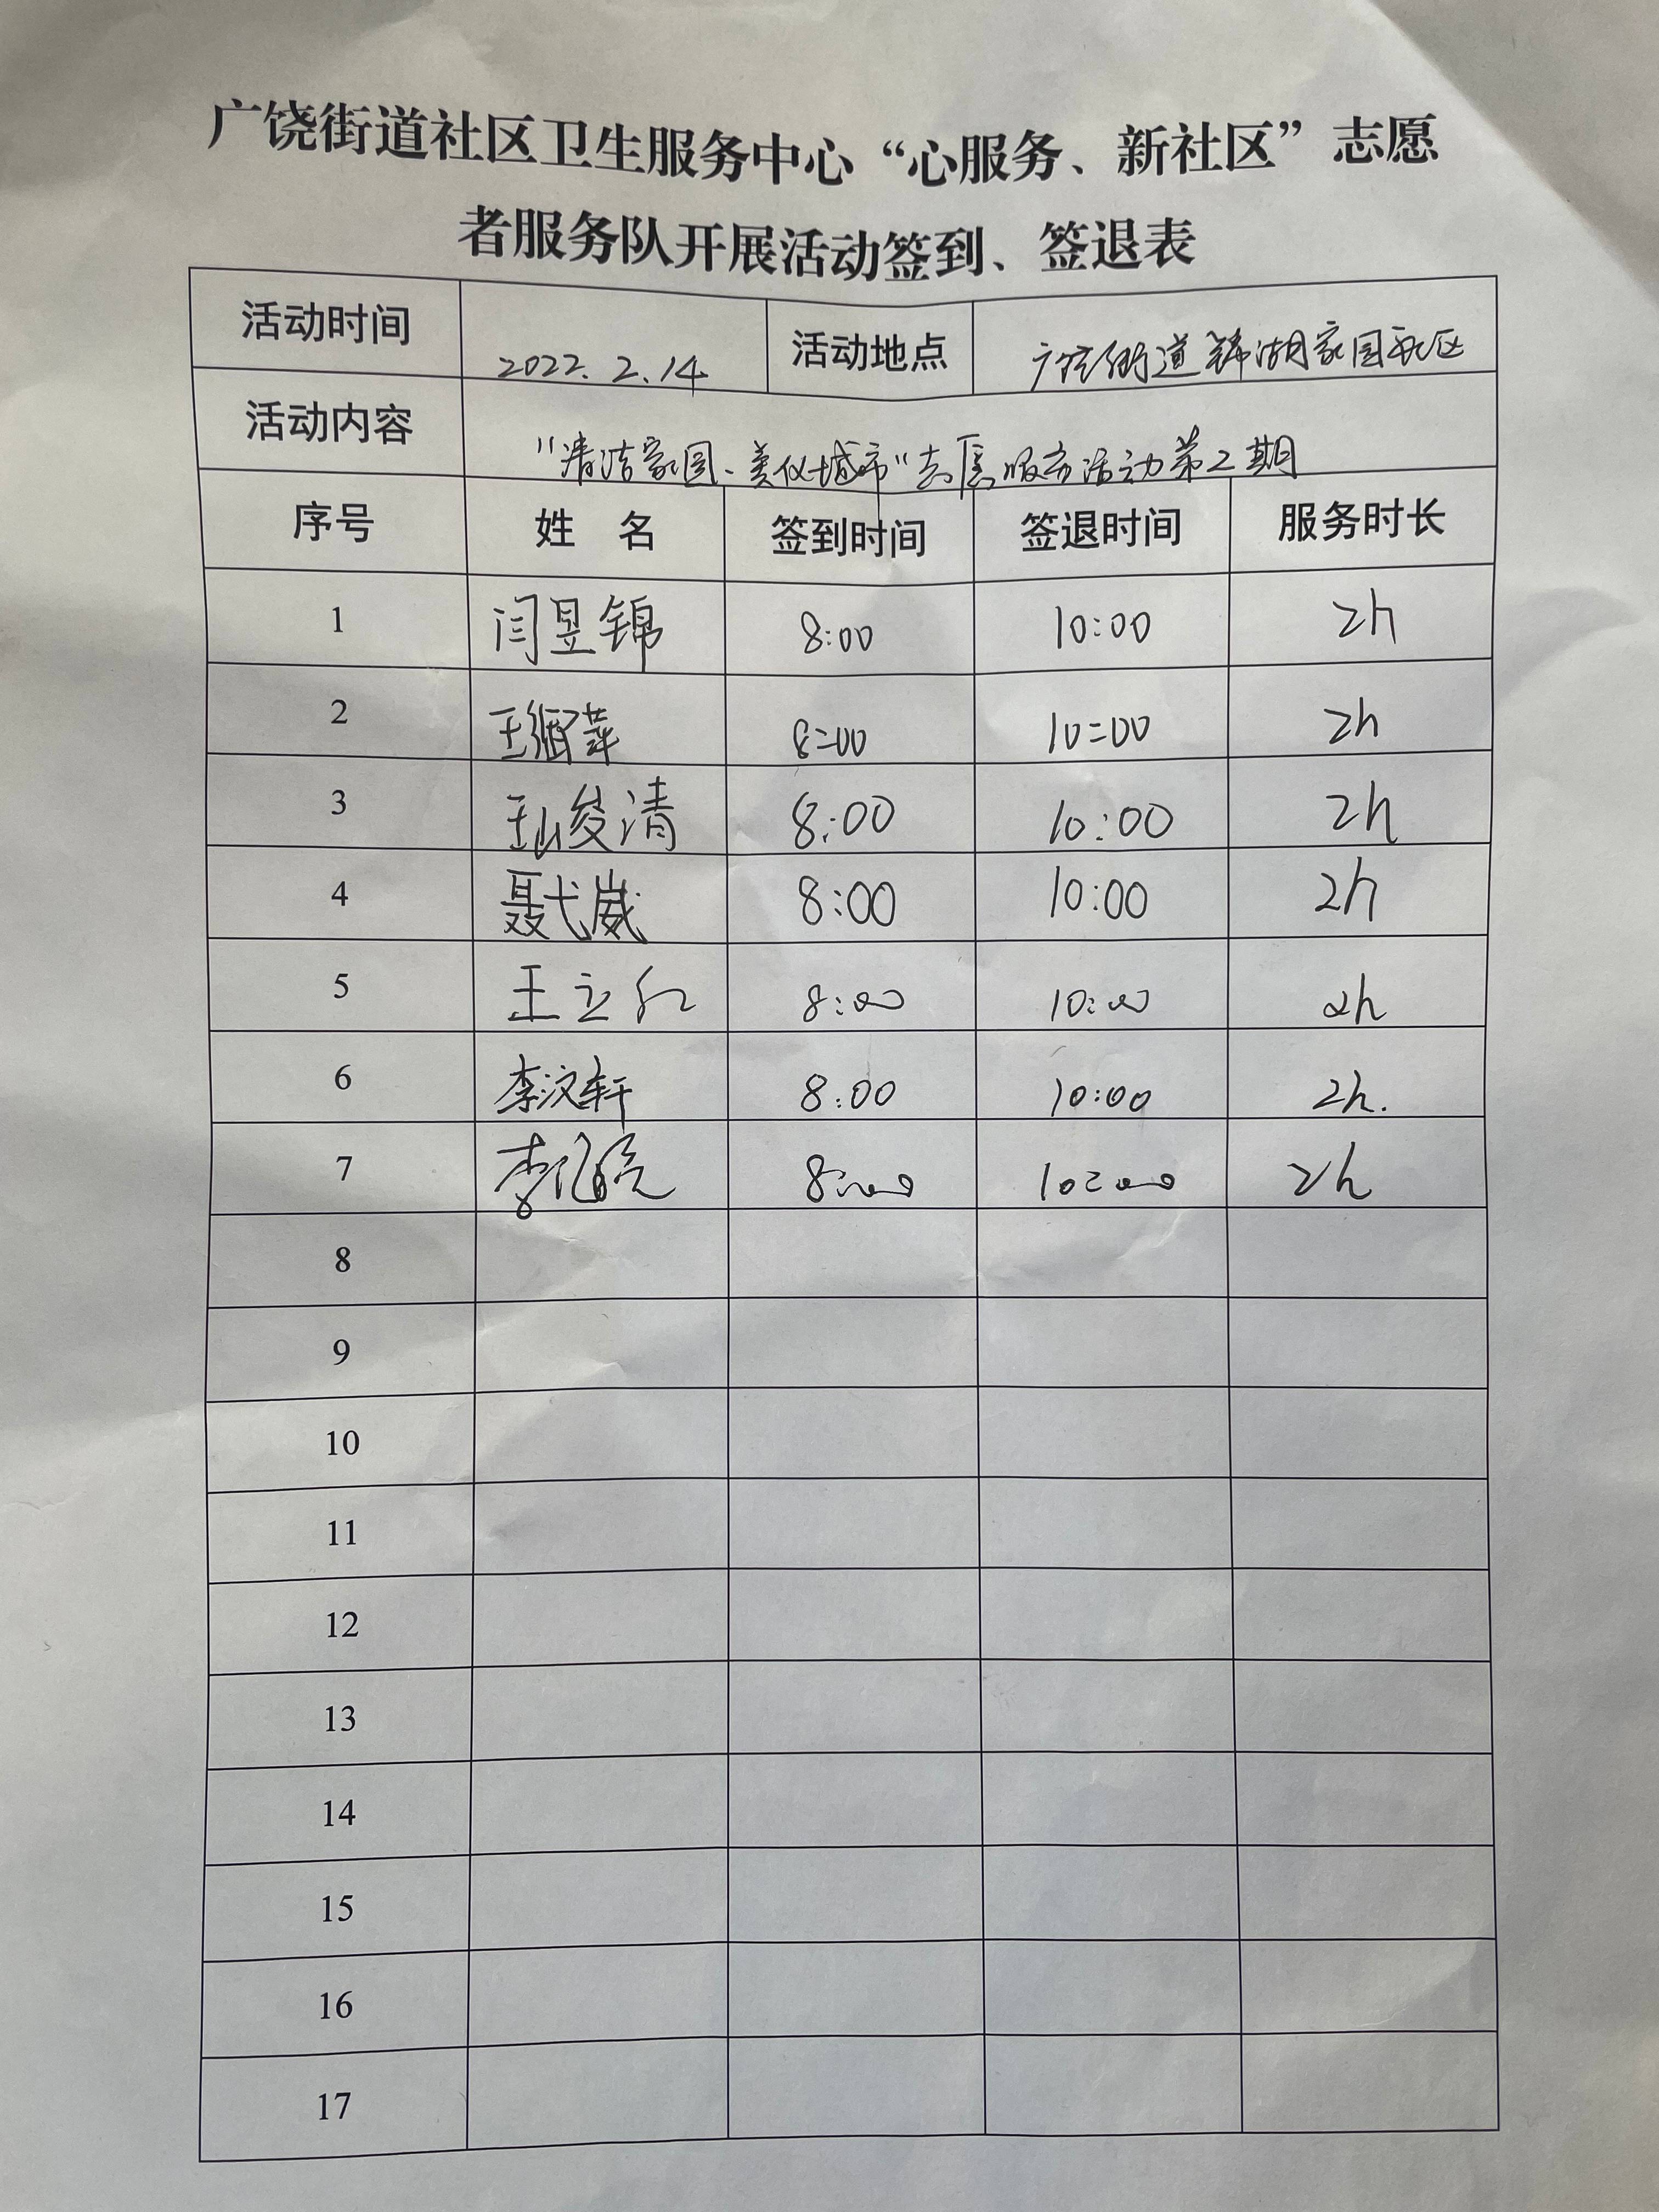 广饶街道社区卫生服务中心“心服务、新社区”志愿
者服务队开展活动签到、签退表
活动时间 2022.2.14 活动地点 广饶街道锦湖家园社区
活动内容 “清洁家园、美化城市”志愿服务活动第2期
序号 姓 名 签到时间 签退时间 服务时长
1 闫昱锦 8:00 10:00 2h
2 王继萍 8:00 10:00 2h
3 俊清 8:00 10:00 2h
4 聂弋崴 8:00 10:00 2h
5 王立红 8:00 10:00 2h
6 李汶轩 8:00 10:00 2h.
7 李 8:00 10:00 2h
8
9
10
11
12
13
14
15
16
17